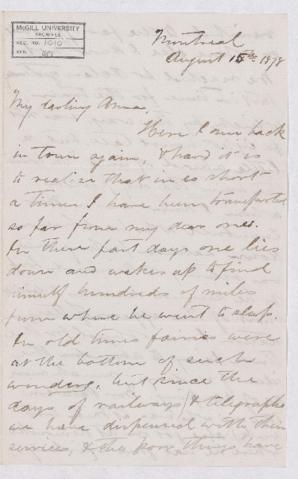 McGILL UNIVERSITY
ARCHIVES
ACC. NO. 1010
REF.
Montreal
August 15th 1878
My darling Anna,
Here I am back
in town again, & hard it is
to realize that in so short
a time I have been transported
so far from my dear ones.
In these fast days one lies
down and wakes up to find
himself hundreds of miles
from where he went to sleep.
In old times fairies were
at the bottom of such
wonders, but since the
days of railways & telegraphs
we have dispensed with their
services, & the poor things have